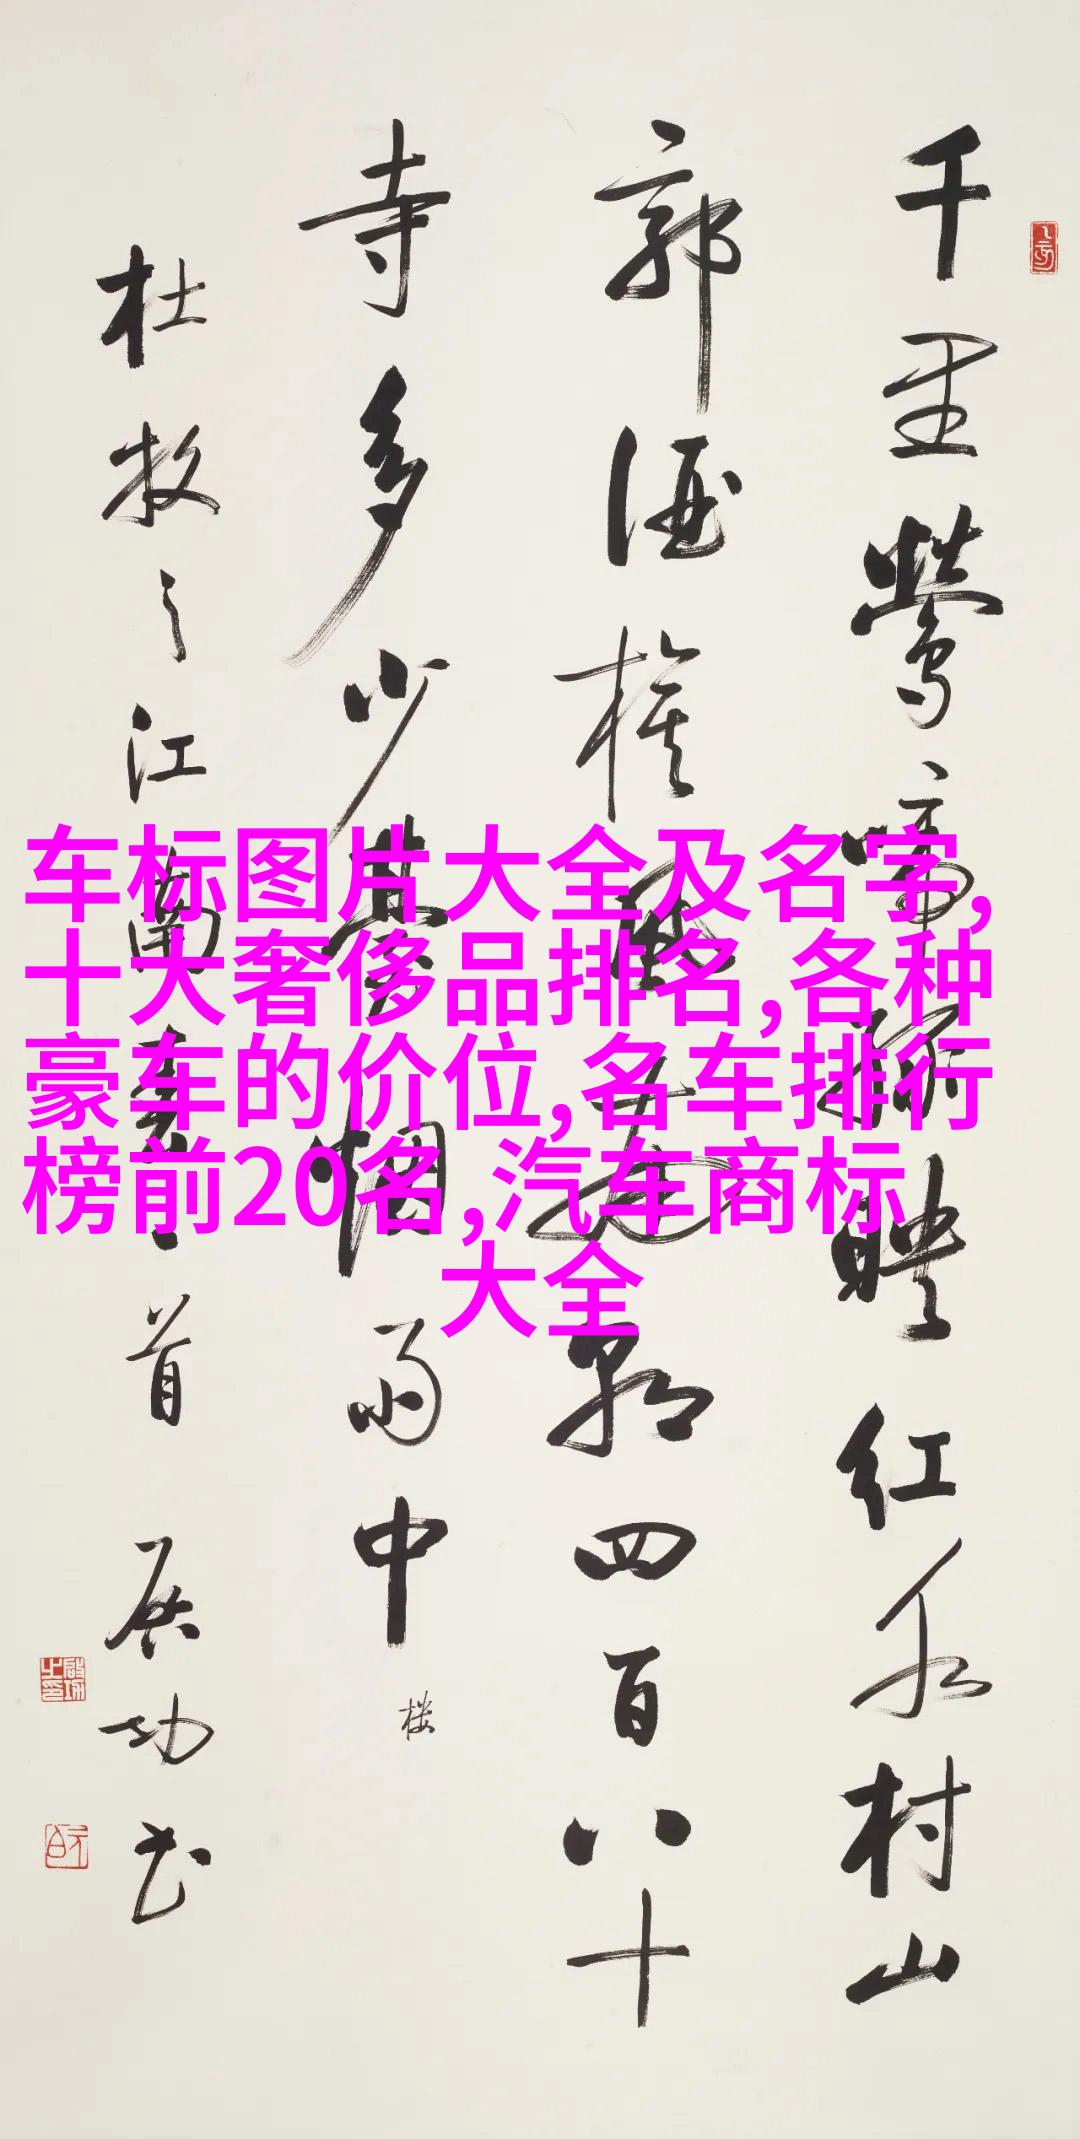 千里鶯啼綠映紅水村山
郭酒旗風南朝四百八十
寺多少臺烟雨中
楼
杜牧之江南春一首 启功书
车标图片大全及名字,
十大奢侈品排名,各种
豪车的价位,名车排行
榜前20名,汽车商标
大全